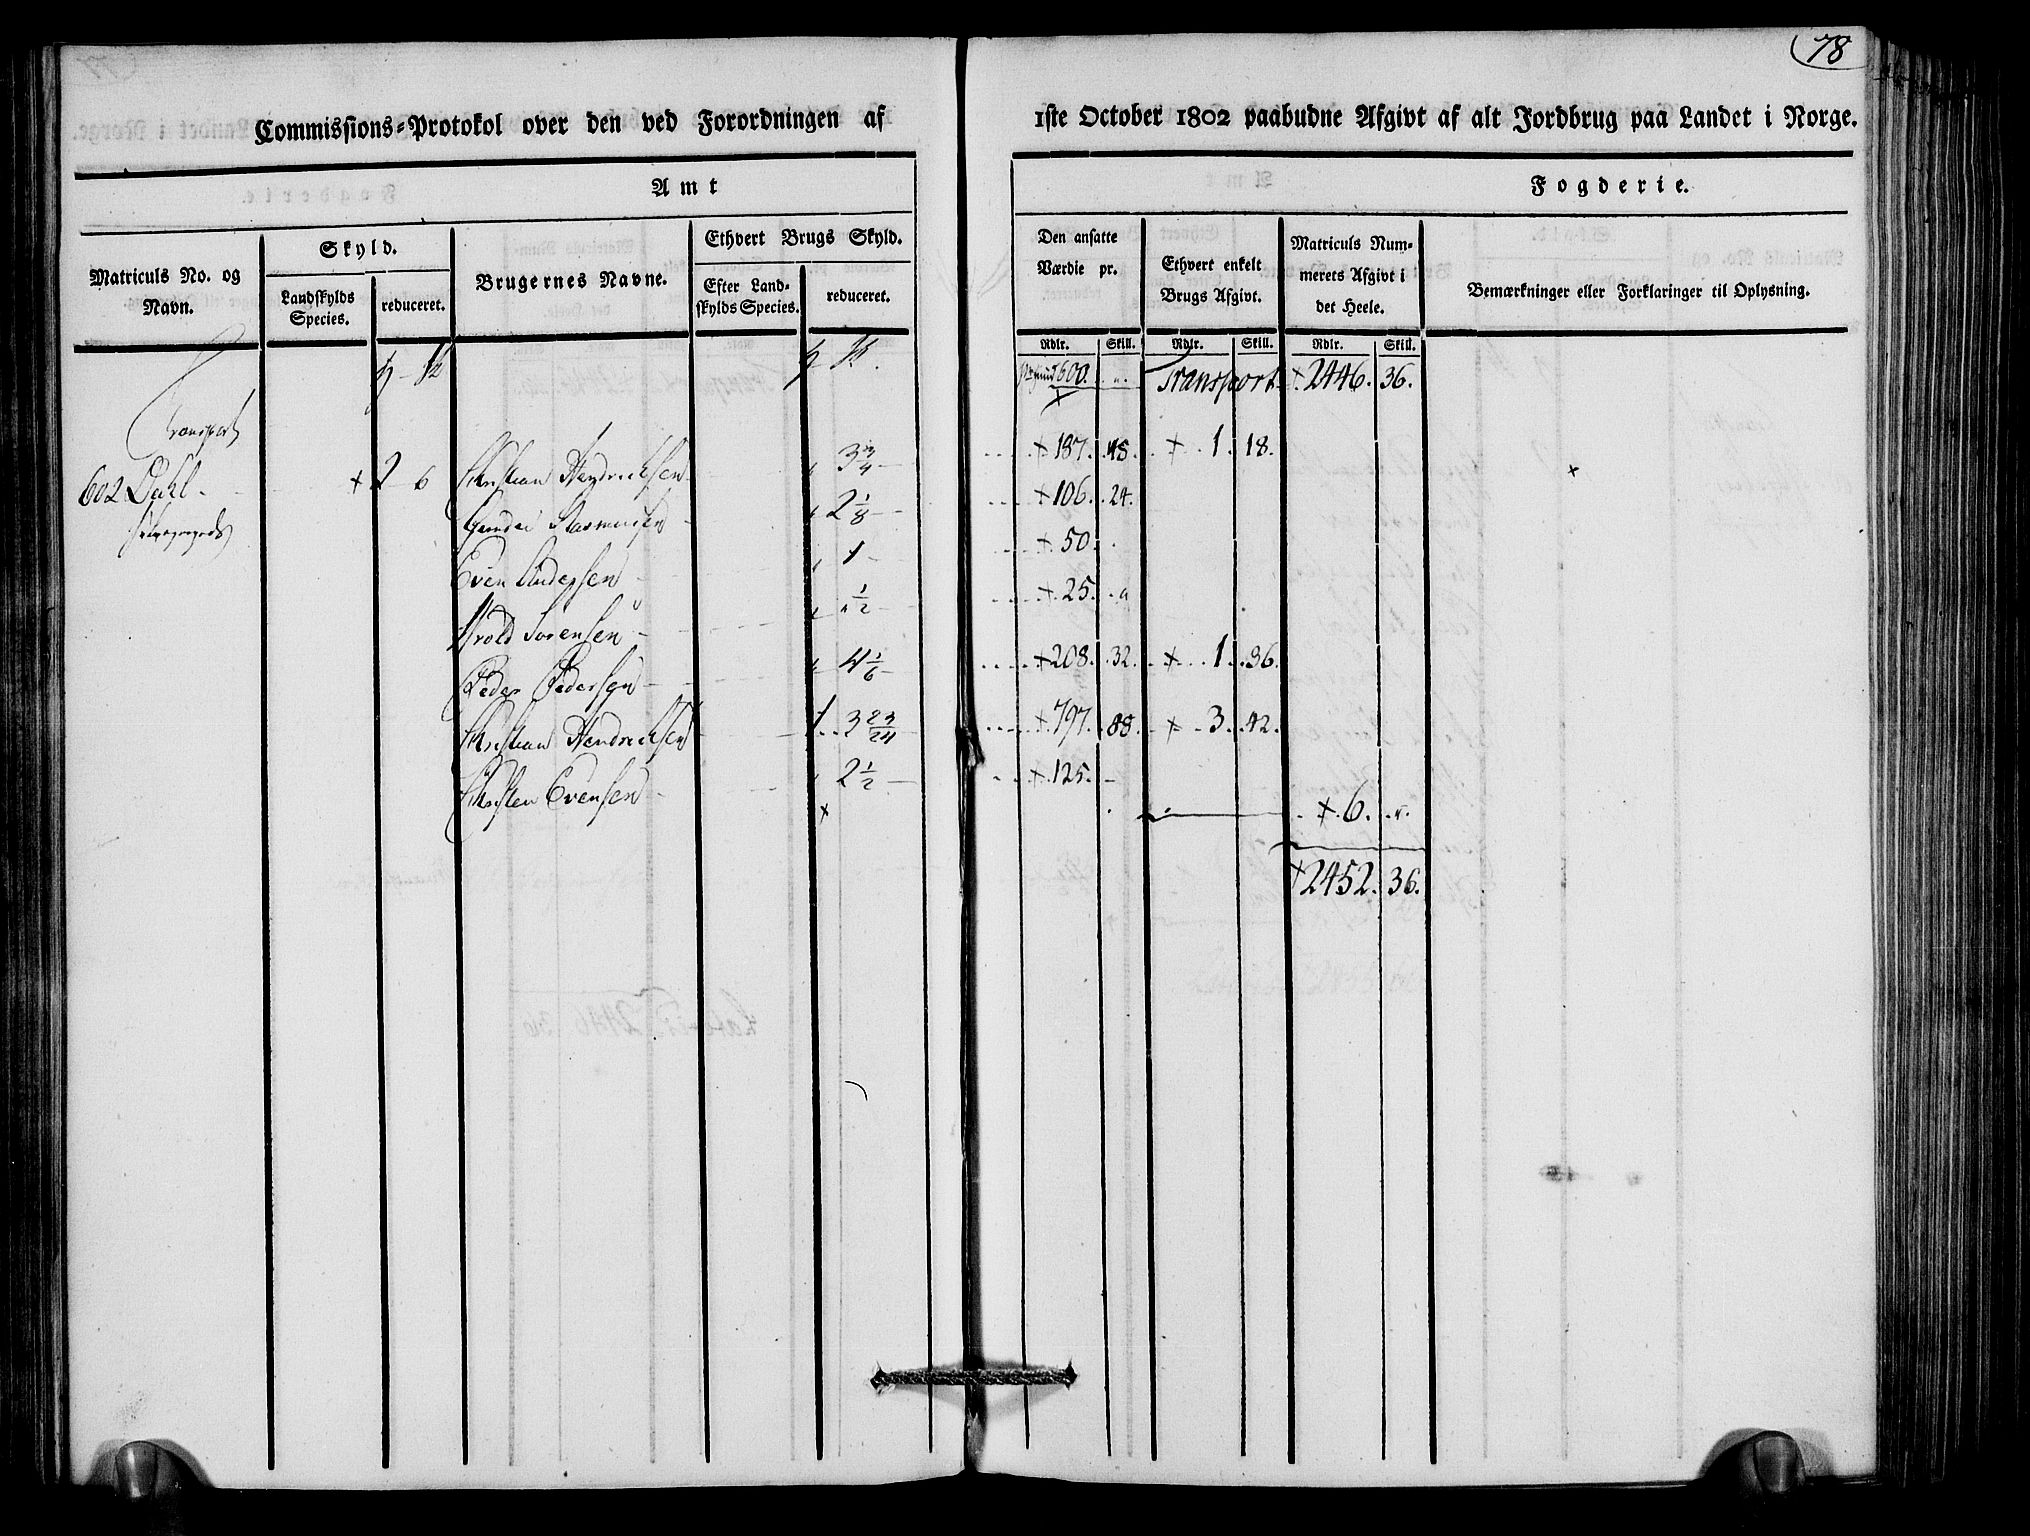 78
Commissions-Protokol over den ved Forordningen af 1ste October 1802 paabudne Afgivt af alt Jordbrug paa Landet i Norge.
Amt Fogderie.
Matriculs No. og Navn.
Skyld.
Landskylds Species.
reduceret.
Brugernes Navne.
Ethvert Brugs Skyld.
Efter Landskylds Species.
reduceret.
Den ansatte Værdie pr.
Ethvert enkelt Brugs Afgivt.
Matriculs Nummerets Afgivt i det Heele.
Bemærkninger eller Forklaringer til Oplysning.
Rdlr. Skill. Rdlr. Skill. Rdlr. Skill.
600. Transport + 2446. 36.
Transport
602 Dahl + 2 - 6 Christian Hendrichsen 3 3/4 + 187. 48. + 1. 18. +
Rasmusen 2 1/8 + 106. 24.
Even Andersen 1 + 50.
Sørensen 1/2 + 25.
Peder Pedersen 4 1/6 + 208. 32. + 1. 36.
Christian Hendrichsen 1. 3 23/24 + 797. 88. + 3. 42.
Christen Evensen 2 1/2 + 125. -
+ + 6.
+ 2452. 36.